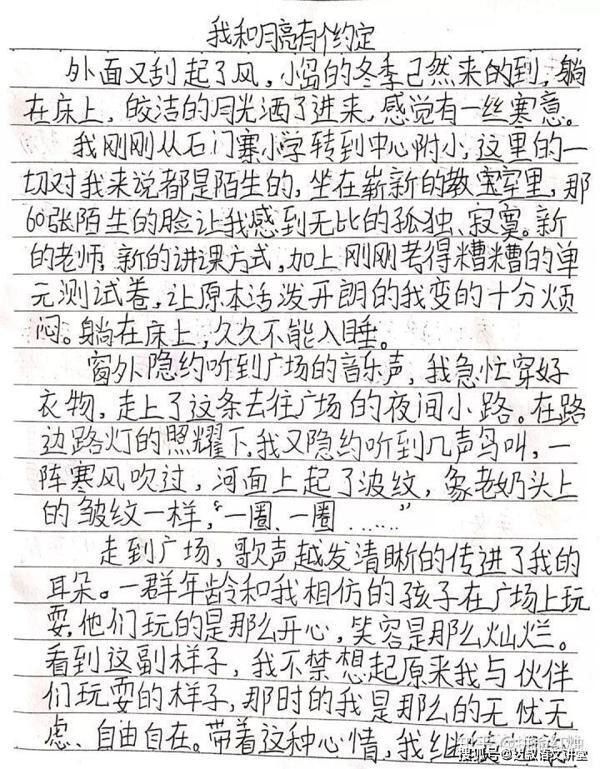 我和月亮有个约定
外面又刮起了风，小岛的冬季已然来的到，躺
在床上，皎洁的月光洒了进来，感觉有一丝寒意。
我刚刚从石门寨小学转到中心附小，这里的一
切对我来说都是陌生的，坐在崭新的教室里，那
60张陌生的脸让我感到无比的孤独、寂寞。新
的老师，新的讲课方式，加上刚刚考得糟糟的单
元测试卷，让原本活泼开朗的我变的十分烦
闷。躺在床上，久久不能入睡。
窗外隐约听到广场的音乐声，我急忙穿好
衣物，走上了这条去往广场的夜间小路。在路
边路灯的照耀下，我又隐约听到几声鸟叫，一
阵寒风吹过，河面上起了波纹，象老奶头上
的皱纹一样，“一圈、一圈……”
走到广场，歌声越发清晰的传进了我的
耳朵。一群年龄和我相仿的孩子在广场上玩
耍，他们玩的是那么开心，笑容是那么灿烂。
看到这副样子，我不禁想起原来我与伙伴
们玩耍的样子，那时的我是那么的无忧无
虑、自由自在。带着这种心情，我继